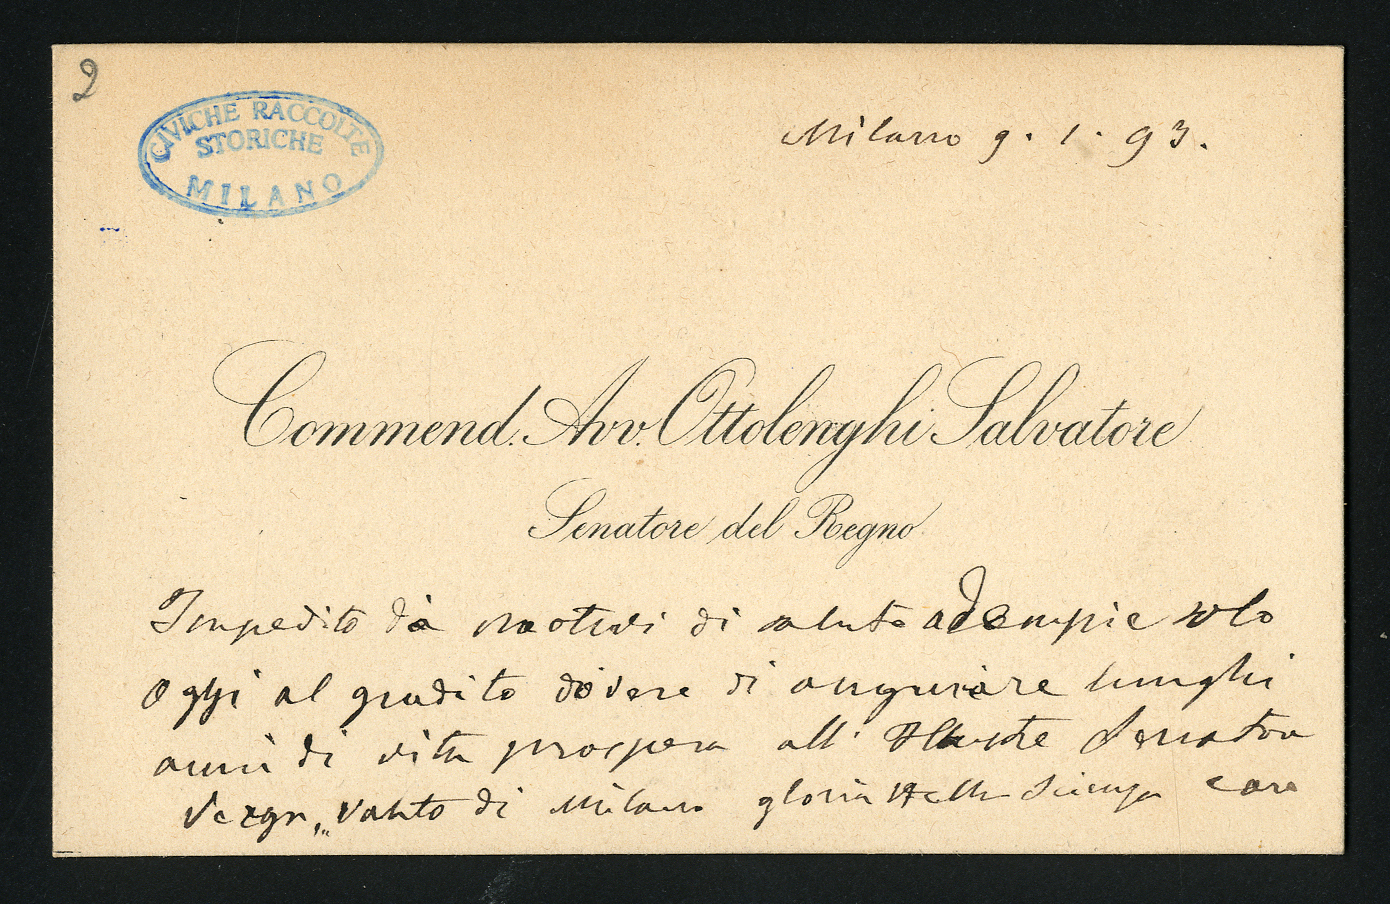 2
CIVICHE RACCOLTE
STORICHE
MILANO
Milano 9. 1. 93.
Commend. Avv. Ottolenghi Salvatore
Senatore del Regno
Impedito da motivi di salute adempie solo
oggi al gradito dovere di augurare lunghi
anni di vita prospera all' Illustre Senatore
Verga, vanto di Milano gloria della Scienza caro